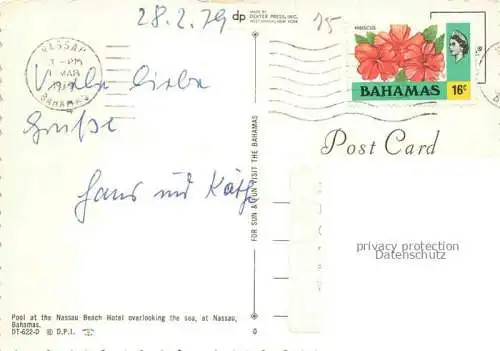 28.2.79
dp
MADE BY
DEXTER PRESS, INC.
WEST NYACK, NEW YORK
HIBISCUS
BAHAMAS 16c
NASSAU
PM
MAR
BAHAMAS
Viele liebe
Grüße
Hans und Käthe
Post Card
FOR SUN & FUN VISIT THE BAHAMAS
privacy protection
DaMatei.com
Pool at the Nassau Beach Hotel overlooking the sea, at Nassau,
Bahamas.
DT-622-D © D.P.I.